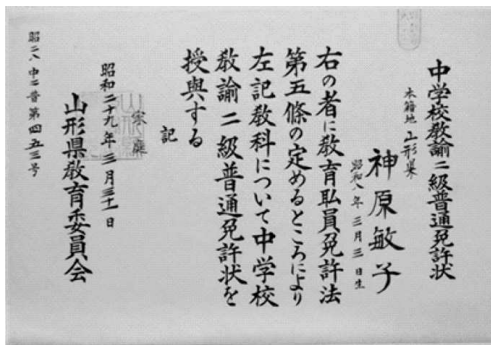 中学校教諭二級普通免許状
本籍地 山形県
神原敏子
昭和八年三月三日生
右の者に教育職員免許法
第五條の定めるところにより
左記教科について中学校
教諭二級普通免許状を
授與する
記
家庭
昭和二十九年三月三十一日
山形県教育委員会
昭二八中二普第四五三号